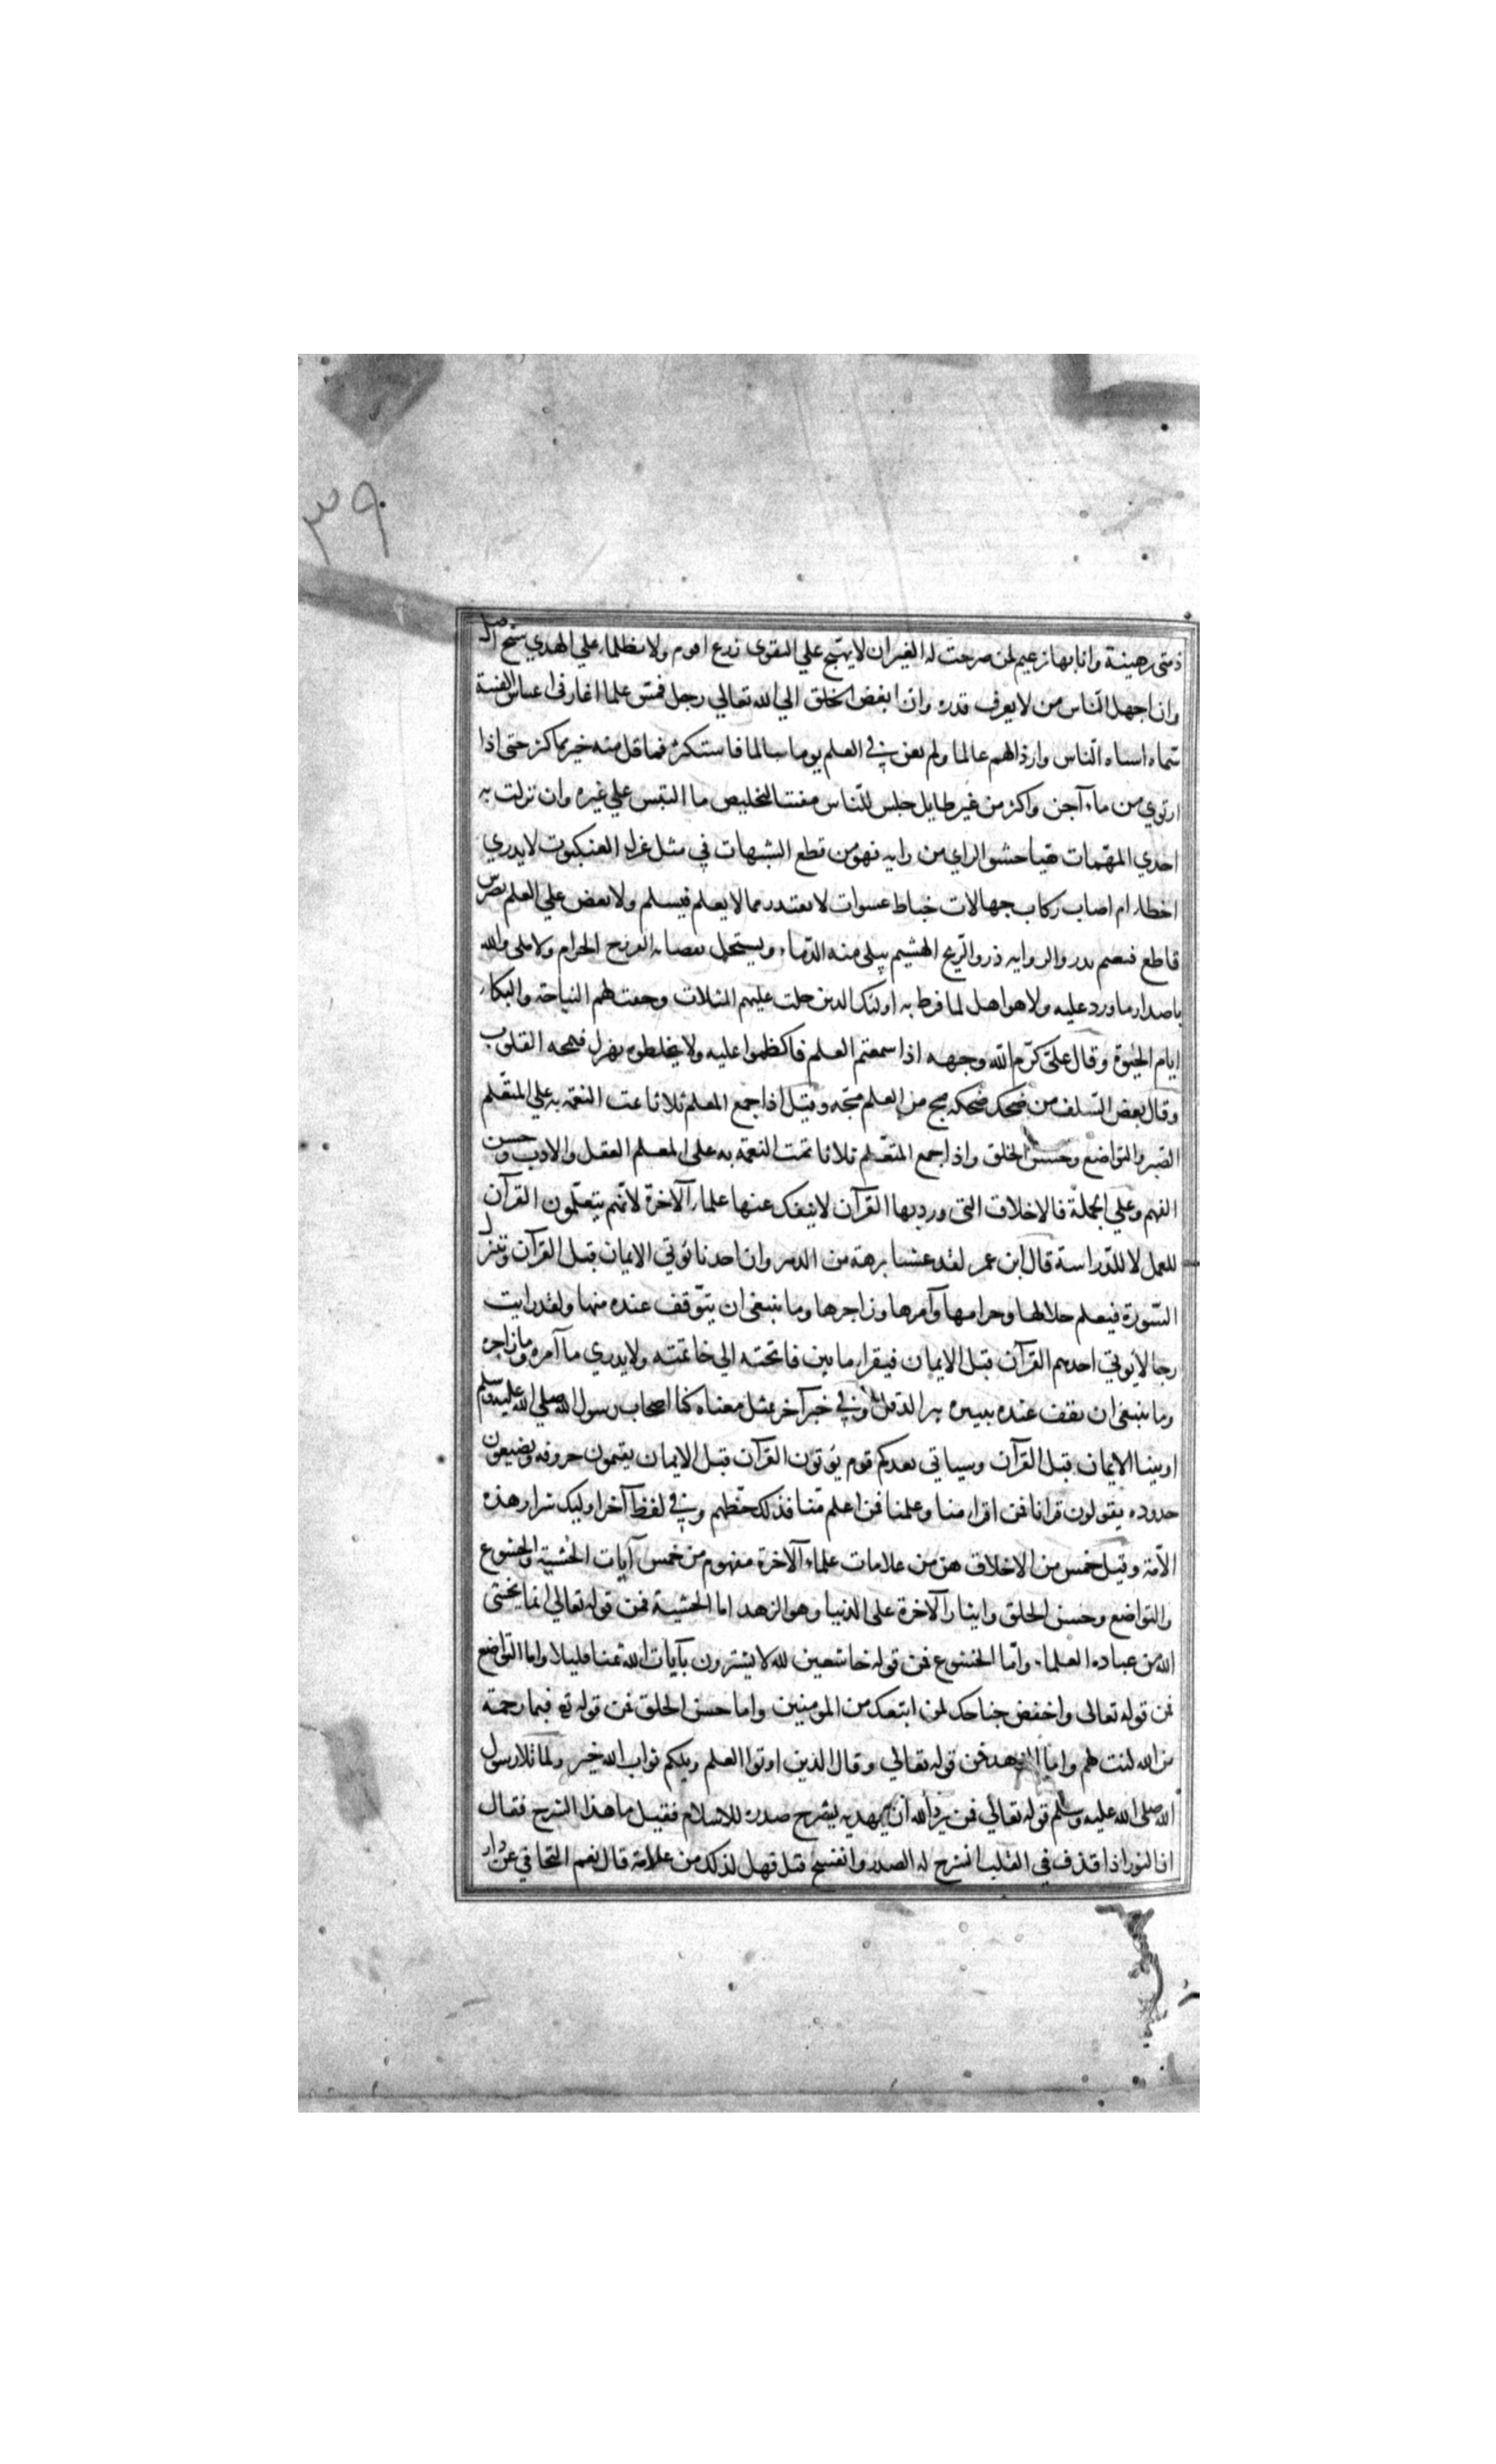 ٣٩
ذمتي رهينة وانا بها زعيم لمن صرحت له الغير ان لا يهيج علي التقوى زرع اهوم ولا يظلماء علي الهدي سنخ اصل
وان اجهل الناس من لا يعرف قدره وان ابغض الخلق الي الله تعالي رجل قمش علما اغار في اغباش الفتنة
سماه اسباه الناس وارذالهم عالما ولم يعن في العلم يوما سالما فاستكثر فما قل منه خير مما كثر حتى اذا
ارتوي من ماء آجن واكثر من غير طايل جلس للناس مفتيا لتخليص ما التبس علي غيره وان نزلت به
احدي المهمات هيا حشو الراي من رايه فهو من قطع الشبهات في مثل غزل العنكبوت لا يدري
اخطاء ام اصاب ركاب جهالات خباط عسوات لا يعتذر مما لا يعلم فيسلم ولا يعض علي العلم بضرس
قاطع فيغنم يذرو الروايه ذرو الريح الهشيم يبكي منه الدماء ويستحل بقضايه الفرج الحرام ولا ملي والله
باصدار ما ورد عليه ولا هو اهل لما فرط به اولئك الذين حلت عليهم المثلات وحقت لهم النياحة والبكاء
ايام الحيوة وقال علي كرم الله وجهه اذا سمعتم العلم فاكظموا عليه ولا يخلطوه بهزل فتمجه القلوب
وقال بعض السلف من ضحك ضحكه مج من العلم مجه وقيل اذا جمع المعلم ثلاثا تمت النعمة به علي المتعلم
الصبر والتواضع وحسن الخلق واذا جمع المتعلم ثلاثا تمت النعمة به علي المعلم العقل والادب وحسن
الفهم وعلي الجملة فالاخلاق التي ورد بها القرآن لا ينفك عنها علماء الآخرة لانهم يتعلمون القرآن
للعمل لا للدراسة قال ابن عمر لقد عشنا برهة من الدهر وان احدنا يوتي الايمان قبل القرآن وتنزل
السورة فيعلم حلالها وحرامها وآمرها وزاجرها وما ينبغي ان يتوقف عنده منها ولقد رايت
رجالا يوتي احدهم القرآن قبل الايمان فيقرا ما بين فاتحته الي خاتمته ولا يدري ما آمره وما زاجره
وما ينبغي ان يقف عنده ينثره نثر الدقل وفي خبر آخر بمثل معناه كنا اصحاب رسول الله صلي الله عليه وسلم
اوتينا الايمان قبل القرآن وسياتي بعدكم قوم يوتون القرآن قبل الايمان يقيمون حروفه ويضيعون
حدوده يقولون قرانا فمن اقرا منا وعلمنا فمن اعلم منا فذلك حظهم وفي لفظ آخر اوليك شرار هذه
الامة وقيل خمس من الاخلاق هن من علامات علماء الآخرة مفهوم من خمس آيات الخشية والخشوع
والتواضع وحسن الخلق وايثار الآخرة علي الدنيا وهو الزهد اما الخشية فمن قوله تعالي انما يخشي
الله من عباده العلماء واما الخشوع فمن قوله خاشعين لله لا يشترون بآيات الله ثمنا قليلا واما التواضع
فمن قوله تعالي واخفض جناحك لمن اتبعك من المومنين واما حسن الخلق فمن قوله تع فبما رحمة
من الله لنت لهم واما الزهد فمن قوله تعالي وقال الذين اوتوا العلم ويلكم ثواب الله خير ولما تلا رسول
الله صلي الله عليه وسلم قوله تعالي فمن يرد الله ان يهديه يشرح صدره للاسلام فقيل ما هذا الشرح فقال
ان النور اذا قذف في القلب انشرح له الصدر وانفسح قيل فهل لذلك من علامة قال نعم التجافي عن دار